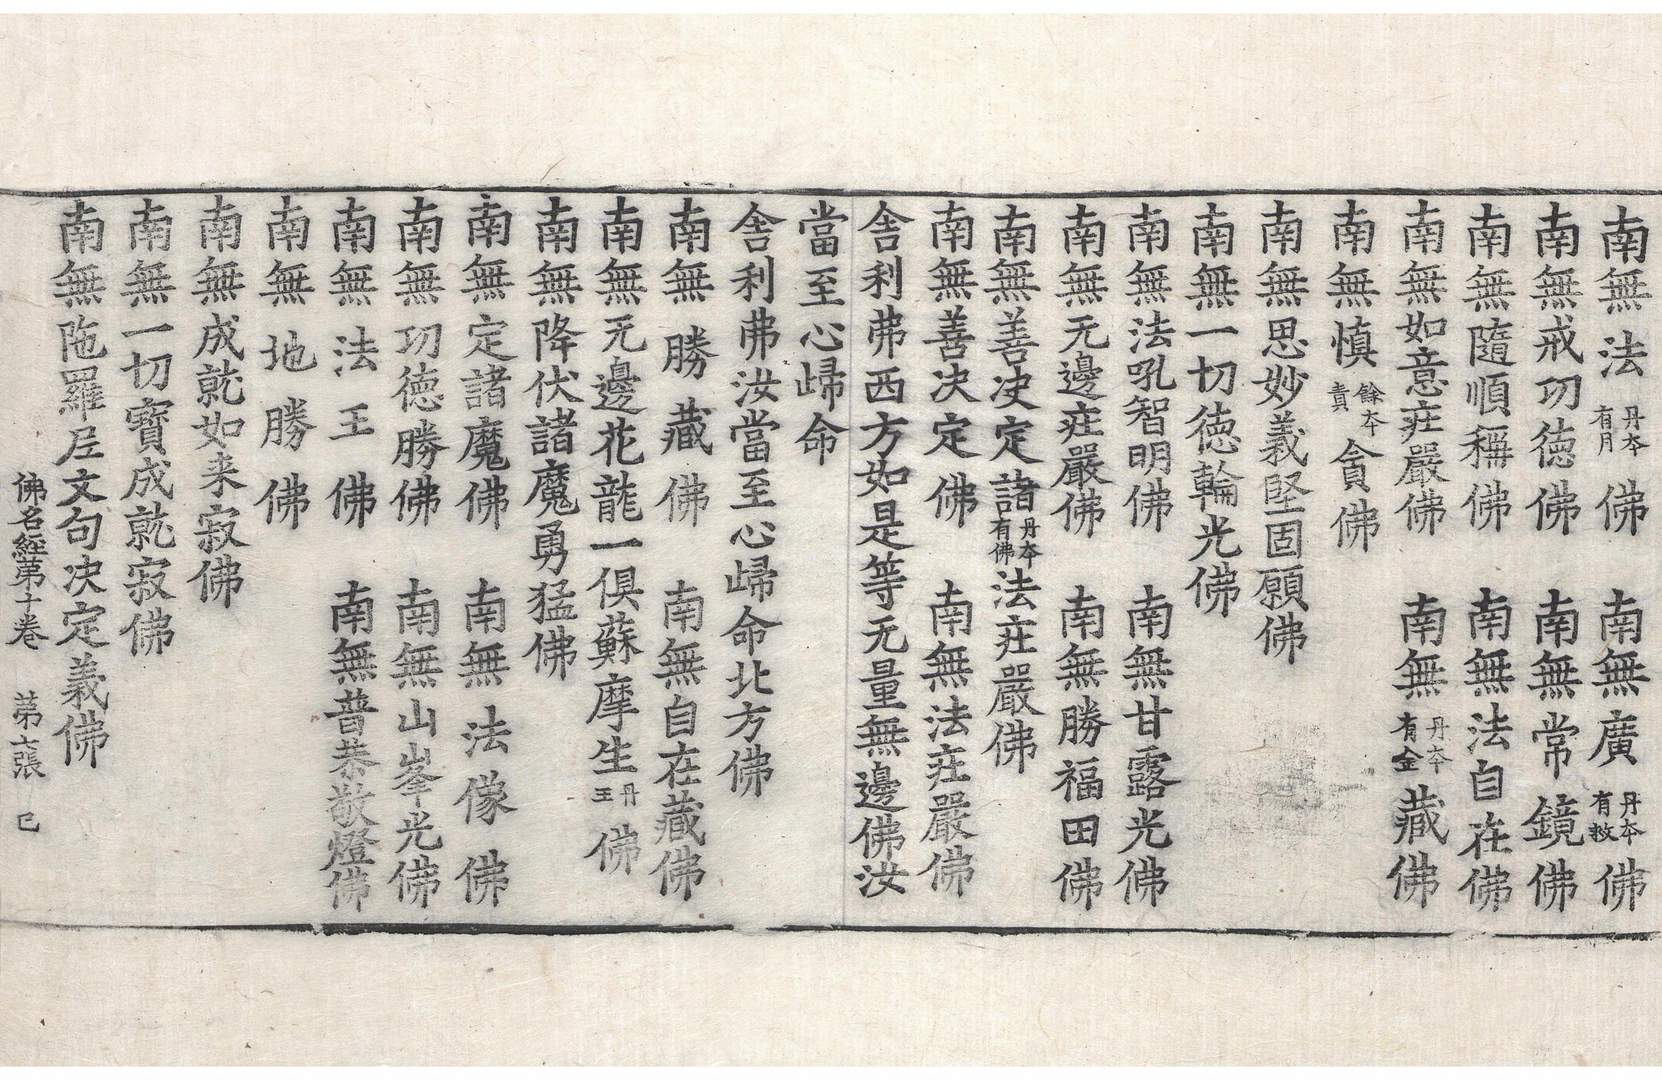 南無法丹本有月佛　南無廣丹本有救佛
南無戒功徳佛　南無常鏡佛
南無隨順稱佛　南無法自在佛
南無如意疰嚴佛　南無丹本有金藏佛
南無慎餘本責貪佛
南無思妙義堅固願佛
南無一切徳輪光佛
南無法吼智明佛　南無甘露光佛
南無无邊疰嚴佛　南無勝福田佛
南無善决定諸丹本有佛法疰嚴佛
南無善决定佛　南無法疰嚴佛
舍利弗西方如是等无量無邊佛汝
當至心歸命
舍利弗汝當至心歸命北方佛
南無勝藏佛　南無自在藏佛
南無无邊花龍一俱蘇摩生丹王佛
南無降伏諸魔勇猛佛
南無定諸魔佛　南無法像佛
南無功徳勝佛　南無山峯光佛
南無法王佛　南無普恭敬燈佛
南無地勝佛
南無成就如来寂佛
南無一切寶成就寂佛
南無陁羅尼文句决定義佛
佛名經第十卷　第七張　巳